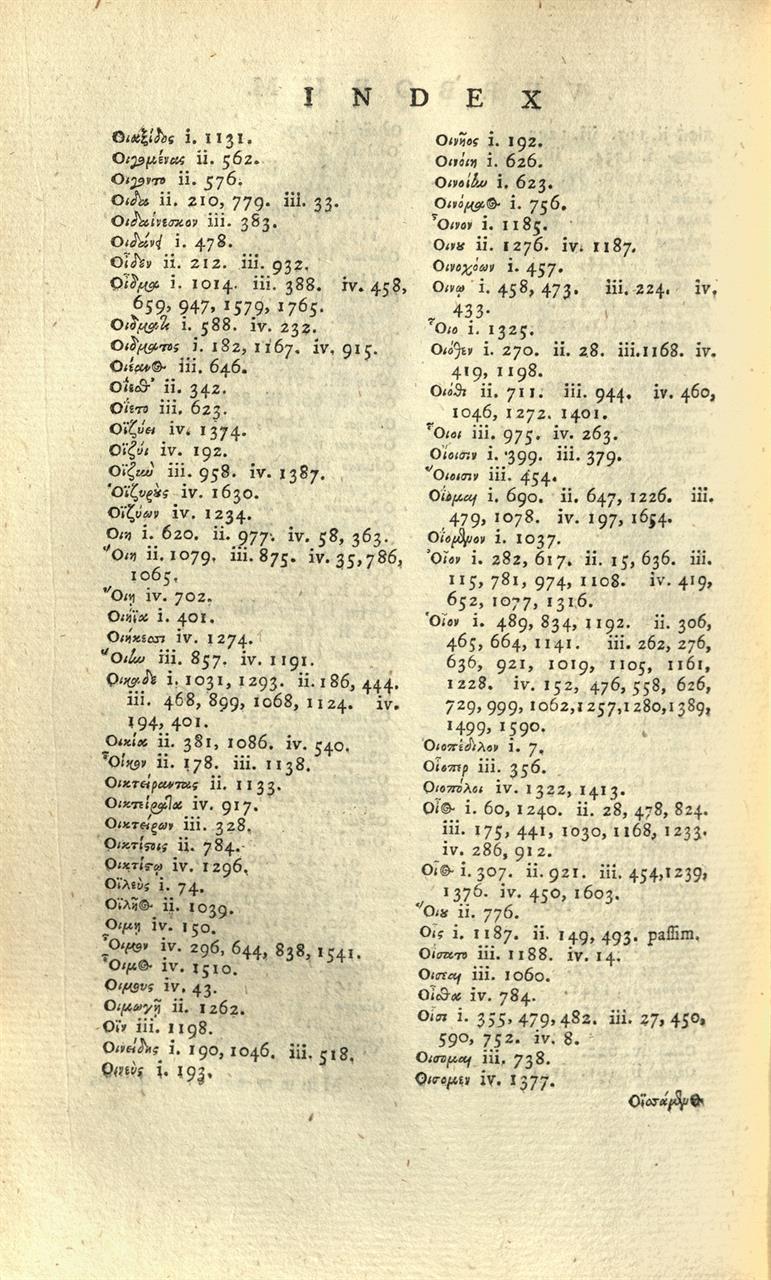 INDEX
Οιαξίδος i. 1131.
Οιγομένας ii. 562.
Οιγοντο ii. 576.
Οιδα ii. 210, 779. iii. 33.
Οιδαίνεσκον iii. 383.
Οιδάνει i. 478.
Οἶδεν ii. 212. iii. 932.
Οἶδμα i. 1014. iii. 388. iv. 458,
659, 947, 1579, 1765.
Οιδματι i. 588. iv. 232.
Οιδματος i. 182, 1167. iv. 915.
Οιέανος iii. 646.
Οἴεσθ' ii. 342.
Οἴετο iii. 623.
Οϊζύει iv. 1374.
Οϊζύι iv. 192.
Οϊζὺν iii. 958. iv. 1387.
Ὀϊζυρὸς iv. 1630.
Οϊζύων iv. 1234.
Οιη i. 620. ii. 977. iv. 58, 363.
Ὄιη ii. 1079. iii. 875. iv. 35, 786,
1065.
Ὄιη iv. 702.
Οιήϊα i. 401.
Οιήκεσσι iv. 1274.
Ὄιην iii. 857. iv. 1191.
Οικαδε i. 1031, 1293. ii. 186, 444.
iii. 468, 899, 1068, 1124. iv.
194, 401.
Οικία ii. 381, 1086. iv. 540.
Ὄικον ii. 178. iii. 1138.
Οικτείραντας ii. 1133.
Οικτείραντα iv. 917.
Οικτείρων iii. 328.
Οικτίςοις ii. 784.
Οικτίςῳ iv. 1296.
Οϊλεὺς i. 74.
Οϊλῆος ii. 1039.
Οιμη iv. 150.
Ὄιμον iv. 296, 644, 838, 1541.
Ὄιμος iv. 1510.
Οιμους iv. 43.
Οιμωγῇ ii. 1262.
Οϊν iii. 1198.
Οινείδης i. 190, 1046. iii. 518.
Οινεὺς i. 193.
Οινῆος i. 192.
Οινόιη i. 626.
Οινοίην i. 623.
Οινόμαος i. 756.
Ὄινον i. 1185.
Οινου ii. 1276. iv. 1187.
Οινοχόων i. 457.
Οινῳ i. 458, 473. iii. 224. iv.
433.
Ὄιο i. 1325.
Οιόθεν i. 270. ii. 28. iii. 1168. iv.
419, 1198.
Οιόθι ii. 711. iii. 944. iv. 460,
1046, 1272. 1401.
Ὄιοι iii. 975. iv. 263.
Οἵοισιν i. 399. iii. 379.
Ὄιοισιν iii. 454.
Οἴομαι i. 690. ii. 647, 1226. iii.
479, 1078. iv. 197, 1654.
Οἰόμενον i. 1037.
Ὄιον i. 282, 617. ii. 15, 636. iii.
115, 781, 974, 1108. iv. 419,
652, 1077, 1316.
Ὁῖον i. 489, 834, 1192. ii. 306,
465, 664, 1141. iii. 262, 276,
636, 921, 1019, 1105, 1161,
1228. iv. 152, 476, 558, 626,
729, 999, 1062, 1257, 1280, 1389,
1499, 1590.
Οιοπέδιλον i. 7.
Οἷόπερ iii. 356.
Οιοπόλοι iv. 1322, 1413.
Οἶος i. 60, 1240. ii. 28, 478, 824.
iii. 175, 441, 1030, 1168, 1233.
iv. 286, 912.
Οἷος i. 307. ii. 921. iii. 454, 1239,
1376. iv. 450, 1603.
Ὄιου ii. 776.
Οις i. 1187. ii. 149, 493. passim.
Οίσατο iii. 1188. iv. 14.
Οισεαι iii. 1060.
Οἶσθα iv. 784.
Οἷσι i. 355, 479, 482. iii. 27, 450,
590, 752. iv. 8.
Οισομαι iii. 738.
Οισομεν iv. 1377.
Οϊσσάμενος